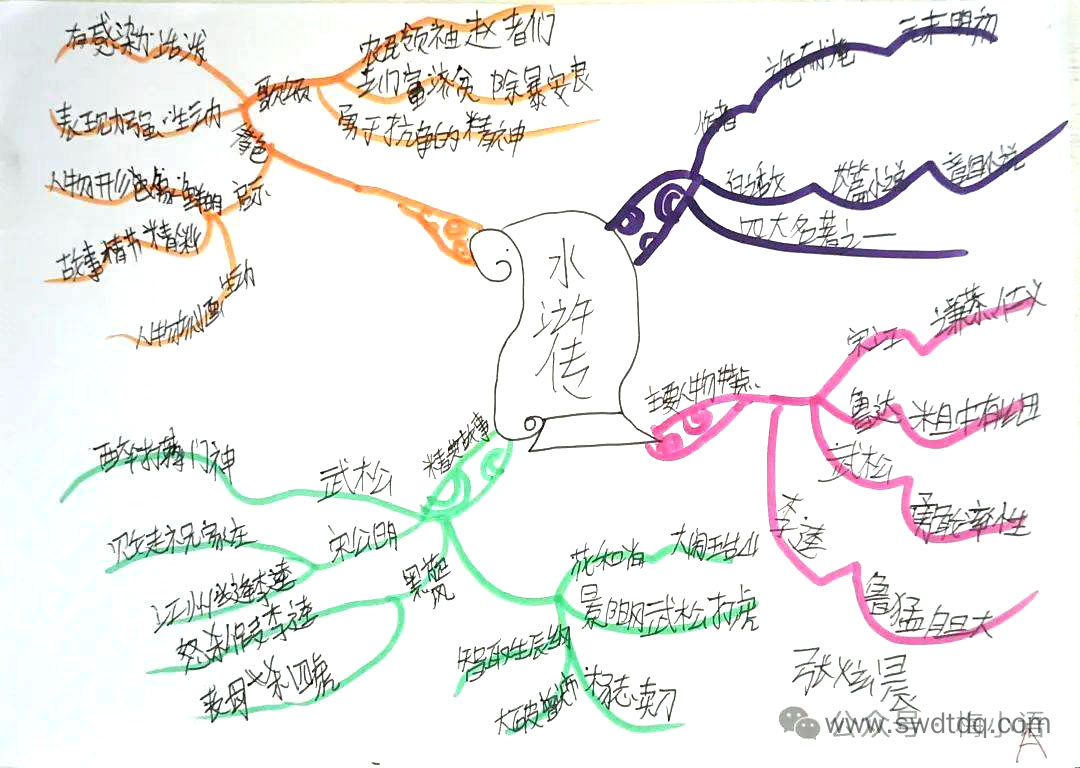 水浒传
作者
施耐庵
元末明初
白话文
长篇小说
章回小说
四大名著之一
主要人物特点
宋江
谦恭仁义
鲁达
粗中有细
武松
勇敢率性
李逵
鲁莽
自大
精英故事
武松
醉打蒋门神
宋公明
江州
李逵
黑旋风
怒杀假李逵
杀四虎
花和尚
景阳
武松打虎
智取生辰纲
杨志卖刀
大破
角色
歌颂
农民领袖起义者们
劫富济贫
除暴安良
勇于抗争的精神
有感染力
活泼
表现力强
生动
人物形象
鲜明
故事情节精彩
人物刻画
生动
张炫晨
公众号
www.swdtdq.com
A